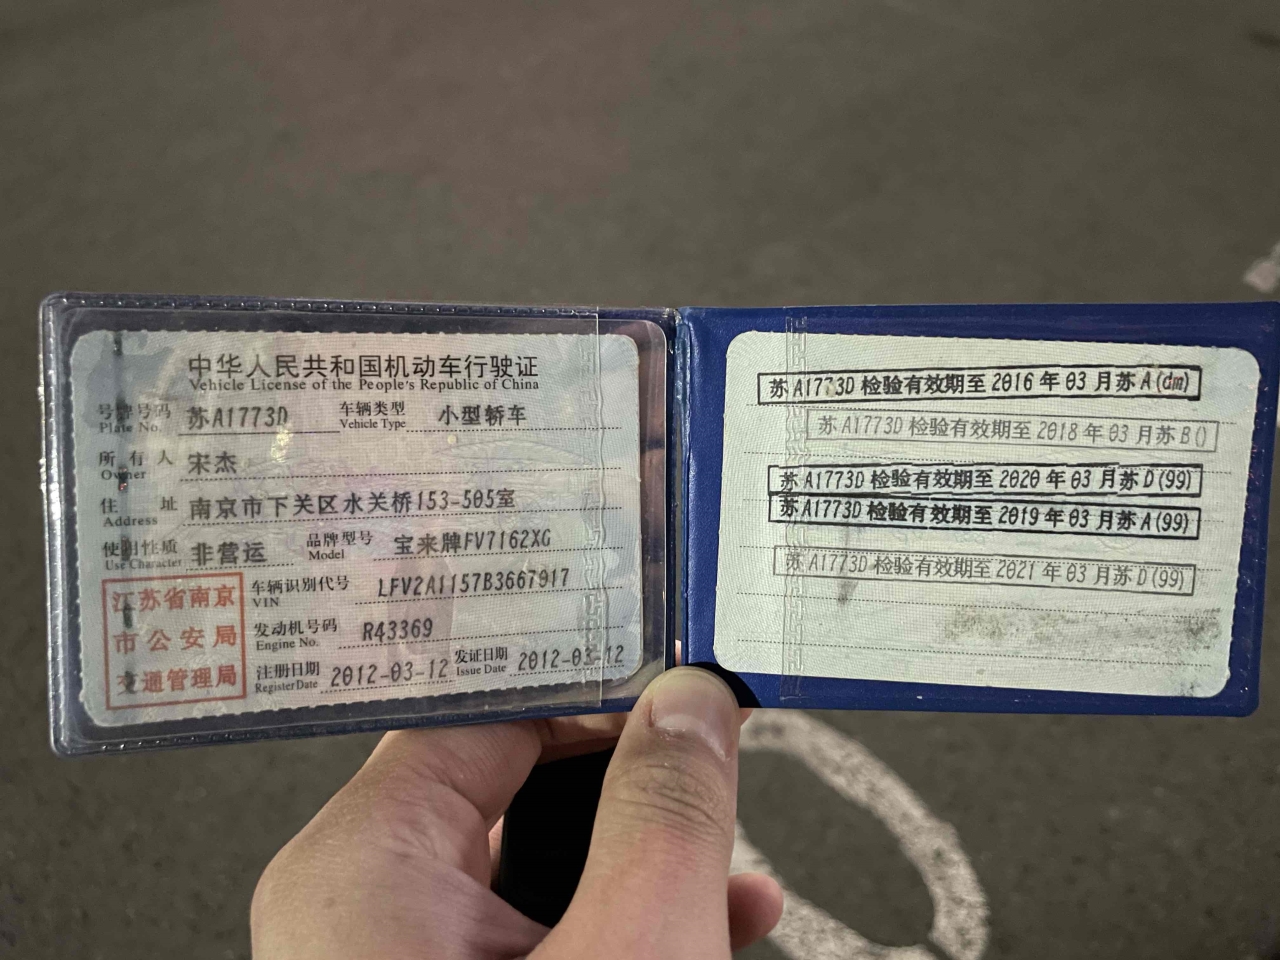 中华人民共和国机动车行驶证
Vehicle License of the People's Republic of China
号牌号码 苏A1773D 车辆类型 小型轿车
Plate No. Vehicle Type
所有人 宋杰
Owner
住址 南京市下关区水关桥153-505室
Address
使用性质 非营运 品牌型号 宝来牌FV7162XG
Use Character Model
车辆识别代号 LFV2A1157B3667917
VIN
发动机号码 R43369
Engine No.
注册日期 2012-03-12 发证日期 2012-03-12
RegisterDate Issue Date
江苏省南京
市公安局
交通管理局
苏A1773D 检验有效期至2016年03月苏A(dm)
苏A1773D 检验有效期至2018年03月苏B()
苏A1773D 检验有效期至2020年03月苏D(99)
苏A1773D 检验有效期至2019年03月苏A(99)
苏A1773D 检验有效期至2021年03月苏D(99)